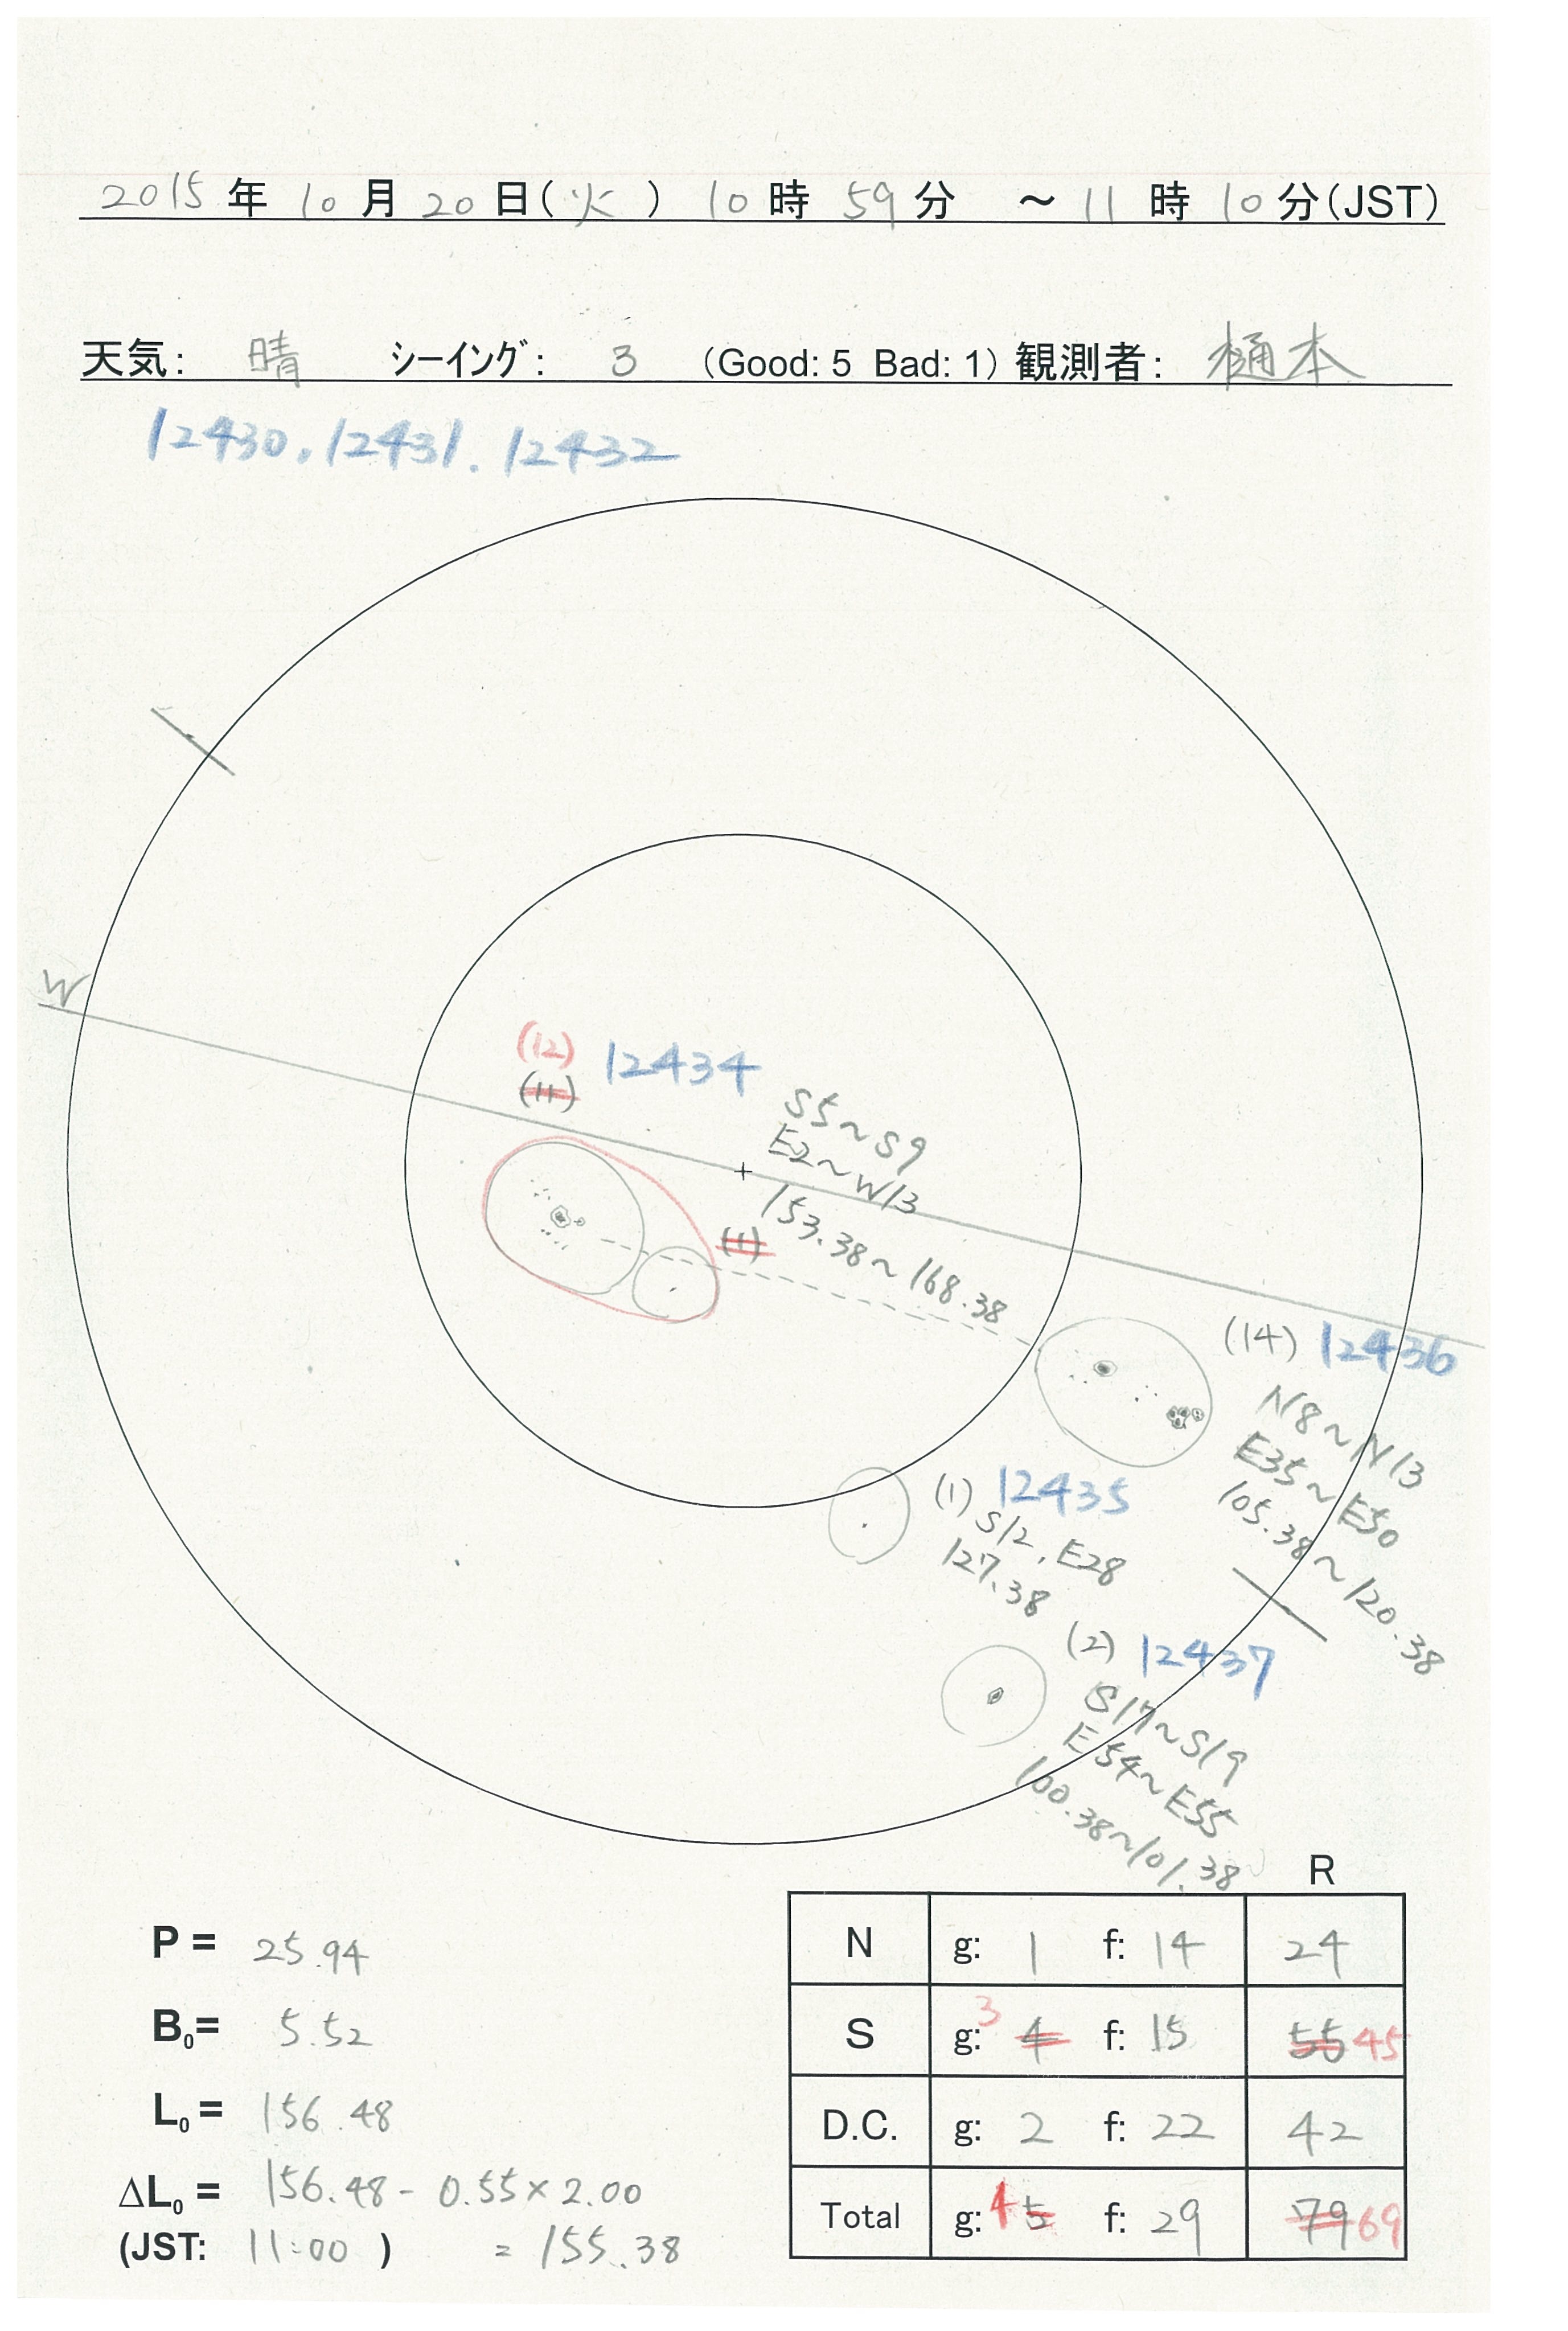 2015 年 10 月 20 日(火) 10 時 59 分 ～ 11 時 10 分(JST)
天気: 晴 シーイング: 3 (Good: 5 Bad: 1) 観測者: 樋本
12430, 12431. 12432
W
(12) 12434
(11)
S5~S9
E2~W13
153.38~168.38
(1)
(14) 12436
N8~N13
E35~E50
105.38~120.38
(1) 12435
S12, E28
127.38
(2) 12437
S17~S19
E54~E55
100.38~101.38
R
N g: 1 f: 14 24
S g: 3 4 f: 15 55 45
D.C. g: 2 f: 22 42
Total g: 4 5 f: 29 79 69
P = 25.94
B₀= 5.52
L₀ = 156.48
ΔL₀ = 156.48 - 0.55 × 2.00
(JST: 11:00 ) = 155.38